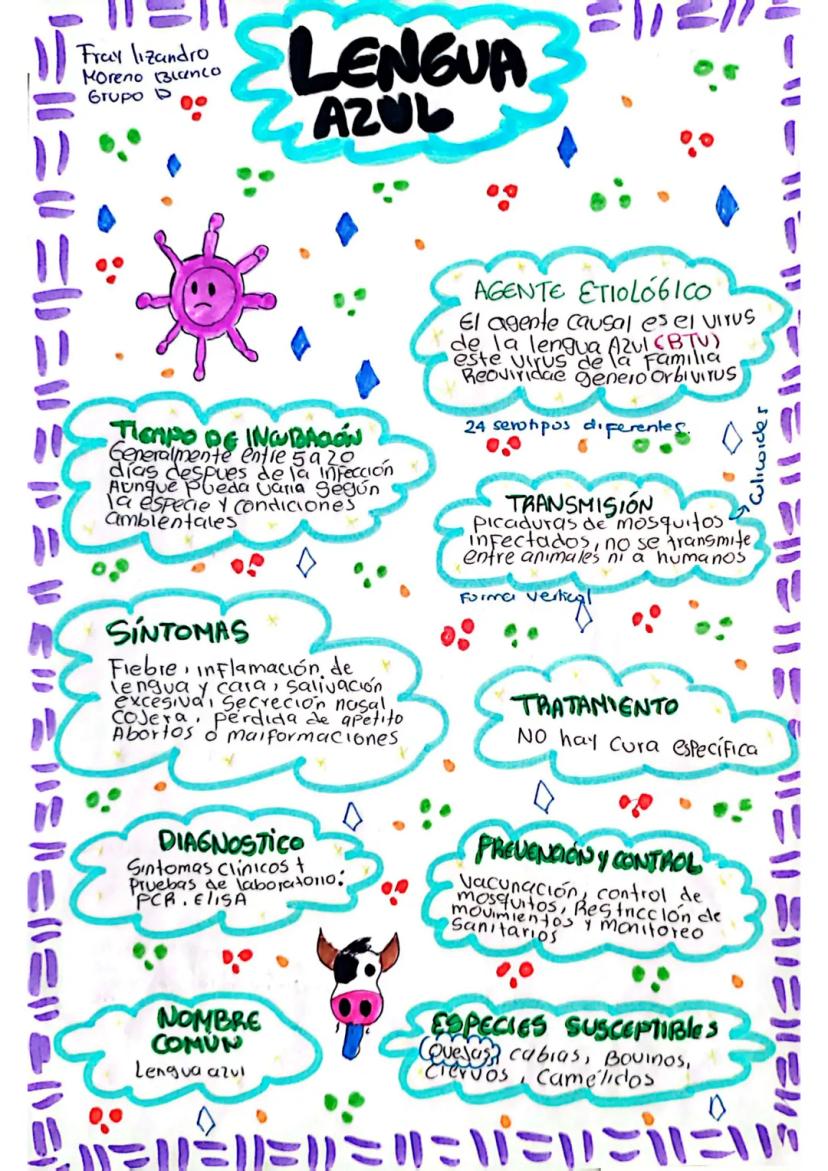 Fray lizandro
Moreno Blanco
Grupo D
LENGUA
AZUL
AGENTE ETIOLÓGICO
El agente causal es el virus
de la lengua Azul (BTV)
este virus de la Familia
Reoviridae genero Orbivirus
24 serotipos diferentes.
TIEMPO DE INCUBACIÓN
Generalmente entre 5 a 20
días despues de la infección
Aunque Pueda Varia Según
la especie y condiciones
ambientales
Culicoides
TRANSMISIÓN
picaduras de mosquitos
infectados, no se transmite
entre animales ni a humanos
Forma vertical
SÍNTOMAS
Fiebre, inflamación de
lengua y cara, salivación
excesiva, Secreción nasal
cojera, perdida de apetito
Abortos o malformaciones
TRATAMIENTO
NO hay cura específica
DIAGNOSTICO
Síntomas clínicos +
Pruebas de laboratorio:
PCR. ElISA
PREVENCIÓN y CONTROL
Vacunación, control de
mosquitos, Restricción de
movimientos y monitoreo
Sanitarios
NOMBRE
COMÚN
Lengua azul
ESPECIES SUSCEPTIBLES
(Ovejas) cabras, Bovinos,
Ciervos, Camélidos